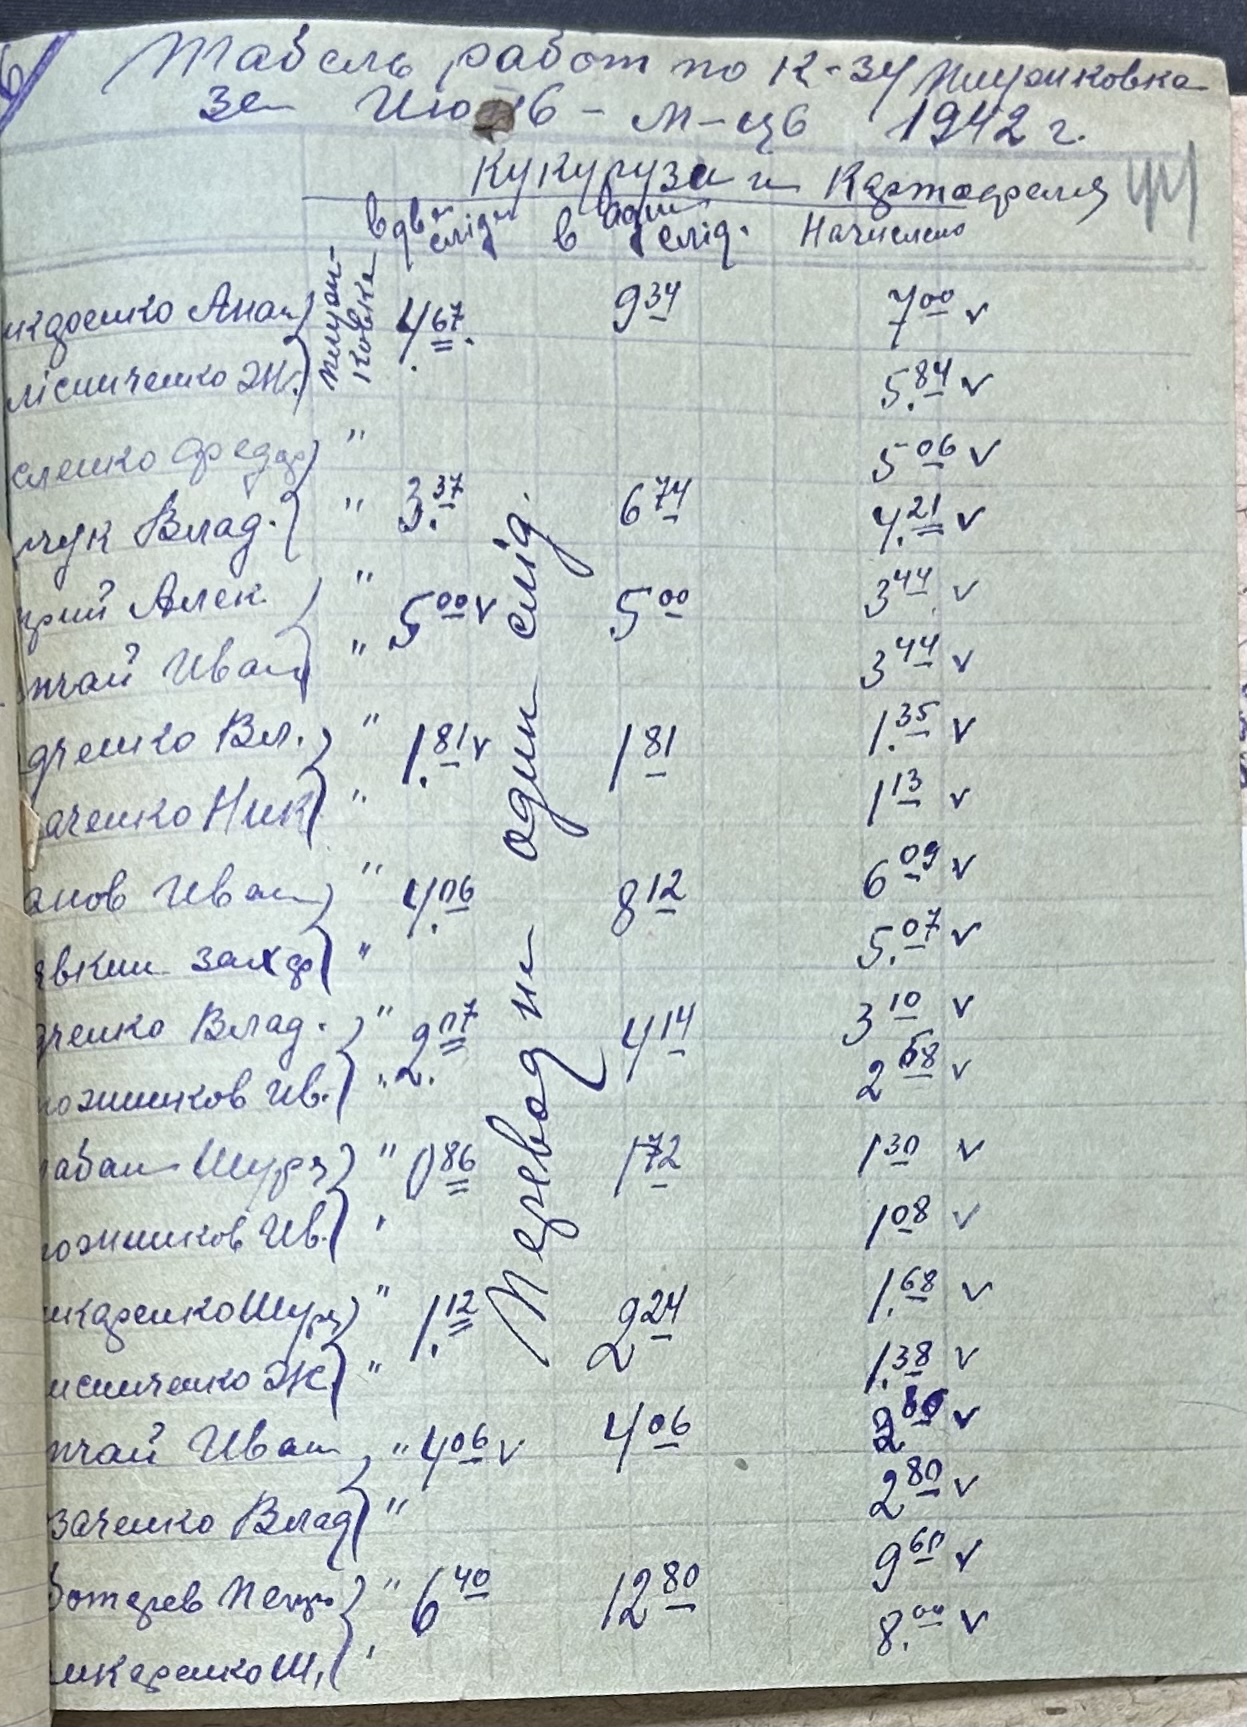 Табель работ по К-зу
за Июль - м-ць 1942 г.
Кукуруза и Картофеля
в два слід. в один слід. Начислено
Анан 4.67 9 34 7 00 v
Ж. 5.84 v
" 5 06 v
чук Влад. " 3.37 6 74 4.21 v
Алек. " 5 00 v 5 00 3 44 v
чай Иван " 3 44 v
дченко Вл. " 1.81 v 1 81 1.35 v
аченко Ник " 1 13 v
анов Иван " 4.06 8 12 6 09 v
" 5.07 v
дченко Влад. " 2.07 4 14 3 10 v
ожников Ив. " 2 58 v
абан Шура " 0 86 1 72 1 30 v
ожников Ив. " 1 08 v
каренко Шура " 1.12 2 24 1.68 v
исниченко Ж " 1.38 v
чай Иван " 4 06 v 4 06 2 80 v
заченко Влад " 2 80 v
" 6 40 12 80 9 60 v
каренко Ш. " 8.00 v
Перевод на один слід.